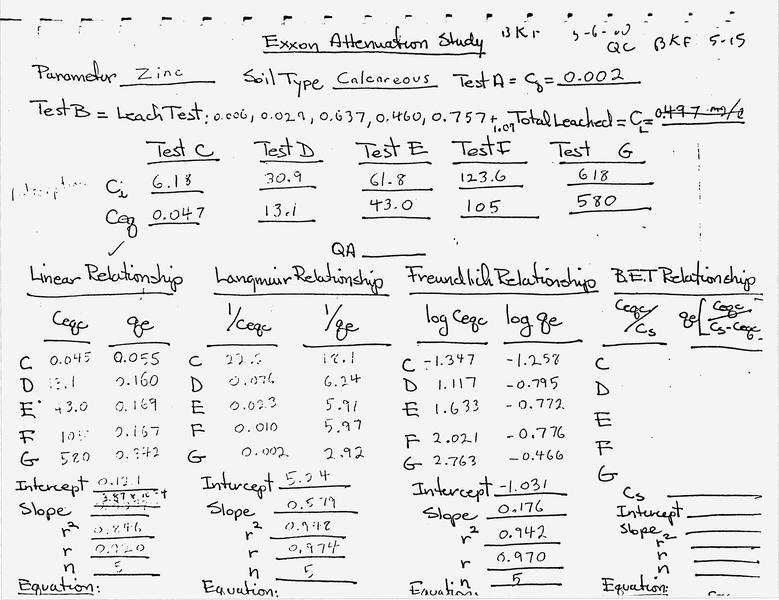 Exxon Attenuation Study BKF 5-6-00 QC BKF 5-15
Parameter Zinc Soil Type Calcareous Test A = C₀ = 0.002
Test B = Leach Test: 0.006, 0.029, 0.037, 0.460, 0.757 + 1.09 Total Leached = C_L = 0.497 mg/
Test C Test D Test E Test F Test G
Ci 6.18 30.9 61.8 123.6 618
Ceq 0.047 13.1 43.0 105 580
QA
Linear Relationship Langmuir Relationship Freundlich Relationship BET Relationship
Ceqc qe 1/Ceqc 1/qe log Ceqc log qe Ceqc/Cs qe[Ceqc/Cs-Ceqc
C 0.045 0.055 C 22.2 18.1 C -1.347 -1.258 C
D 13.1 0.160 D 0.076 6.24 D 1.117 -0.795 D
E 43.0 0.169 E 0.023 5.91 E 1.633 -0.772 E
F 105 0.167 F 0.010 5.97 F 2.021 -0.776 F
G 580 0.342 G 0.002 2.92 G 2.763 -0.466 G
Intercept Intercept Intercept -1.031 Cs
Slope Slope 0.579 Slope 0.176 Intercept
r² 0.846 r² 0.948 r² 0.942 Slope
r 0.920 r 0.974 r 0.970 r²
n 5 n 5 n 5 r
n
Equation: Equation: Equation: Equation: